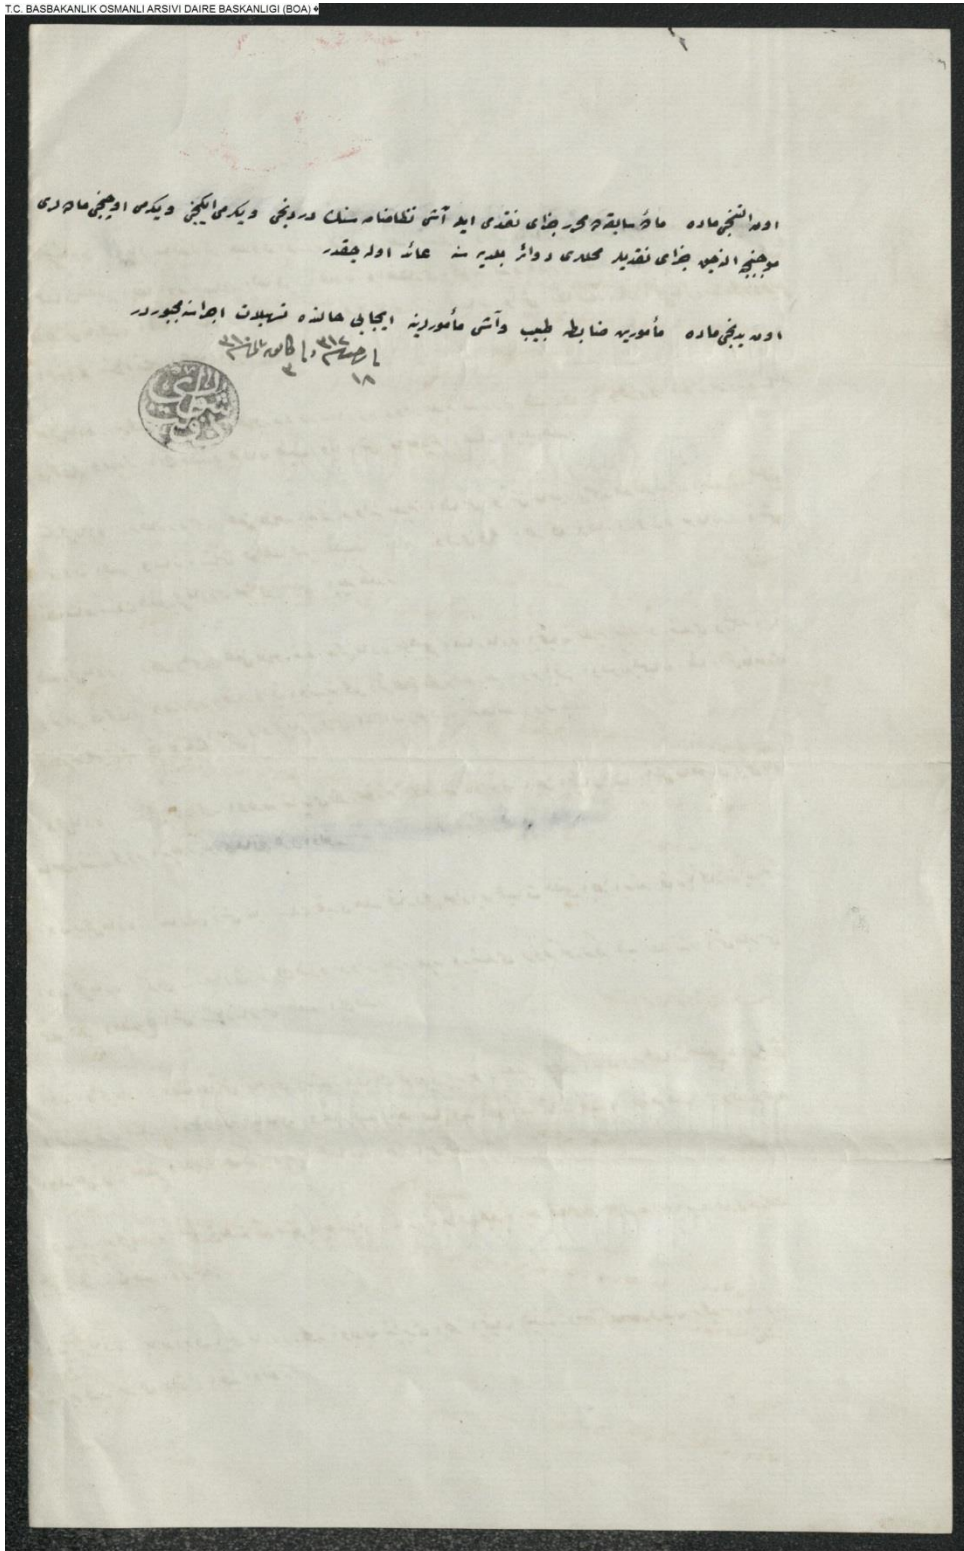 T.C. BASBAKANLIK OSMANLI ARSIVI DAIRE BASKANLIGI (BOA)
اون التنجی ماده مادۀ سابقه‌ده محرر جزای نقدی ایله آشی نظامنامه سنك دردنجی ویكرمی ایكنجی ویكرمی اوچنجی ماده لری
موجبنجه النه‌جق جزای نقدیلر محللری دوائر بلدیه سنه عائد اوله جقدر
اون یدنجی ماده مأمورین ضابطه طبیب وآشی مأمورلرینه ایجابی حالنده تسهیلات اجراسنه مجبوردر
٣١٢
١٨ ٣